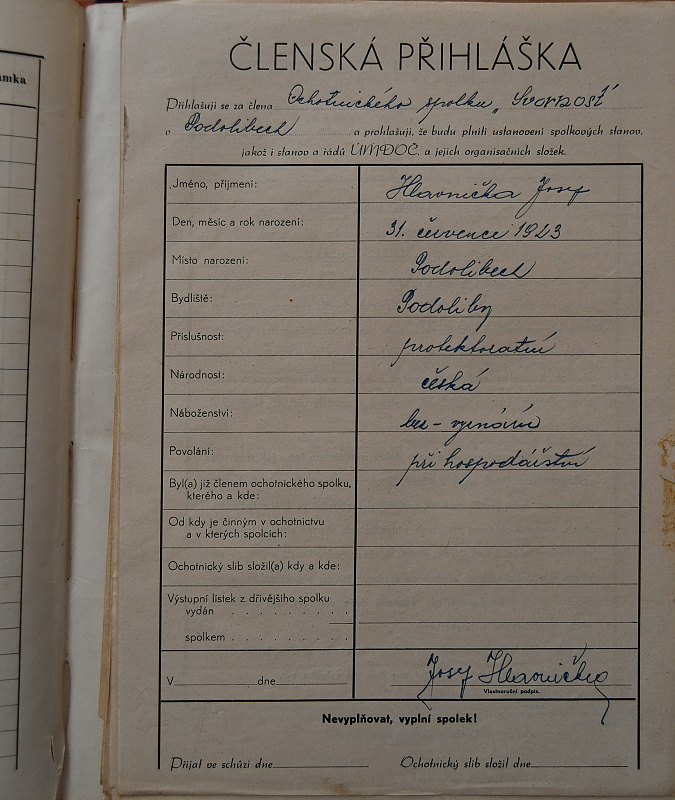 ámka
ČLENSKÁ PŘIHLÁŠKA
Přihlašuji se za člena Ochotnického spolku „Svornost"
v Podolibech a prohlašuji, že budu plniti ustanovení spolkových stanov,
jakož i stanov a řádů ÚMDOČ. a jejich organisačních složek.
Jméno, příjmení: Hlavnička Josef
Den, měsíc a rok narození: 31. července 1923
Místo narození: Podolibech
Bydliště: Podoliby
Příslušnost: protektoratní
Národnost: česká
Náboženství: bez - vyznání
Povolání: při hospodářství
Byl(a) již členem ochotnického spolku,
kterého a kde:
Od kdy je činným v ochotnictvu
a v kterých spolcích:
Ochotnický slib složil(a) kdy a kde:
Výstupní lístek z dřívějšího spolku
vydán . . . . . . . .
spolkem . . . . . . . .
V dne Josef Hlavnička
Vlastnoruční podpis.
Nevyplňovat, vyplní spolek!
Přijat ve schůzi dne Ochotnický slib složil dne